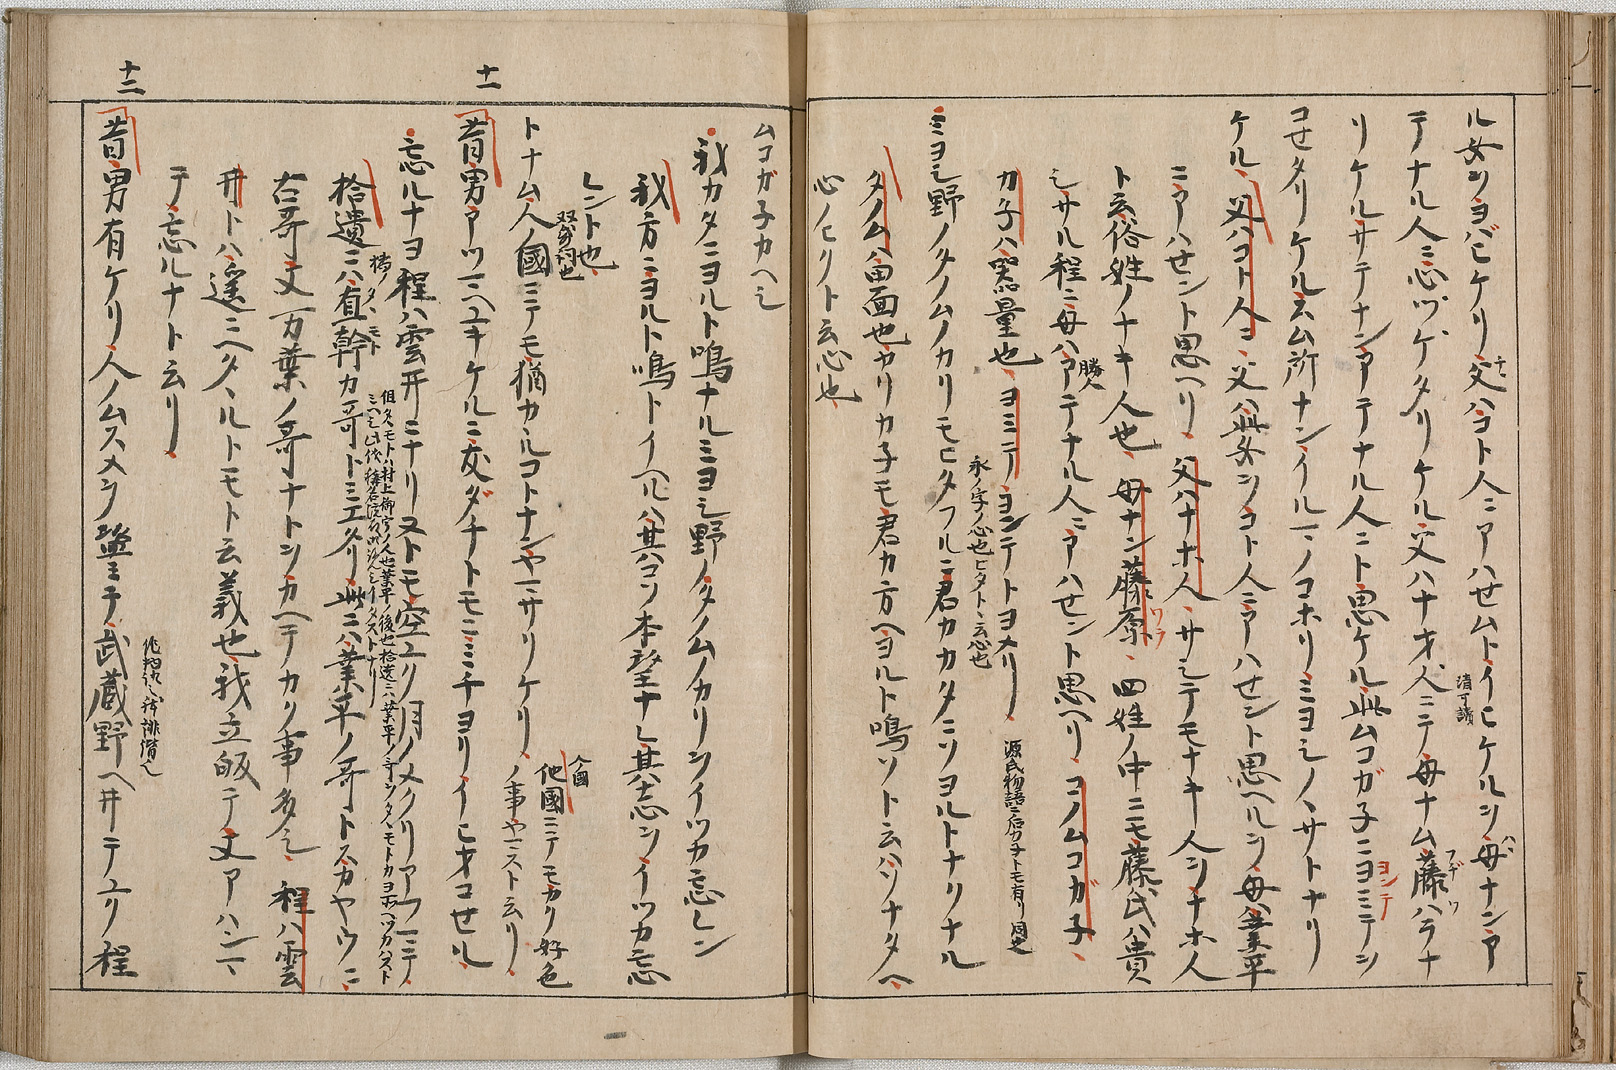 ル女ヲヨバヒケリ父ハコト人ニアハセムトイヒケルヲ母ナンア
テナル人ニ心ヅケタリケル父ハナオ人ニテ母ナム藤ハラナ
リケルサテナンアテナル人ニト思ケル此ムコガ子ニヨミテヲ
コセタリケルスム所ナンイルマノコホリミヨシノヽサトナリ
ケル父ハコト人ヨ父ハ此女ヲコト人ニアハセント思ヘルヲ母ハ業平
ニアハセント思ヘリ父ハナホ人サシテモナキ人ヲナホ人
ト云俗姓ノナキ人也母ナン藤原四姓ノ中ニモ藤氏ハ貴
シサル程ニ母ハアテナル人ニアハセント思ヘリコノムコガ子
カ子ハ器量也ヨミテヲコンテトヨメリ
源氏物語ニ后カ子トモ有リ同也
ミヨシ野ノタノムノカリモヒタフルニ君カカタニソヨルトナリナル
永ノ字ノ心也ヒタト云心也
タノムハ田面也カリカ子モ君カ方ヘヨルト鳴ソト云ハソナタヘ
心ヒクト云心也
ムコガ子カヘシ
我カタニヨルト鳴ナルミヨシ野ノタノムノカリヲイツカ忘レン
我方ニヨルト鳴トイヘルハ其コソ本望ナレ其志ヲイツカ忘
レント也
トナム人ノ國ニテモ猶カヽルコトナンヤマサリケリ
双帋詞也
人國
他國ニテモカク好色
ノ事ヤマスト云リ
十一
昔男アツマヘユキケルニ友ダチトモニミチヨリイヒオコセル
忘ルナヨ程ハ雲井ニナリヌトモ空ユク月ノメクリアフマテ
拾遺ニハ直幹カ哥トミエタリ此ニハ業平ノ哥トスカヤウニ
橘タヽモト
古哥又万葉ノ哥ナトヲカヘテカク事多シ程ハ雲
井トハ遥ニヘタヽルトモト云義也我立皈テ又アハンマ
テ忘ルナト云リ
十二
昔男有ケリ人ノムスメヲ盗ミテ武蔵野ヘ井テユク程